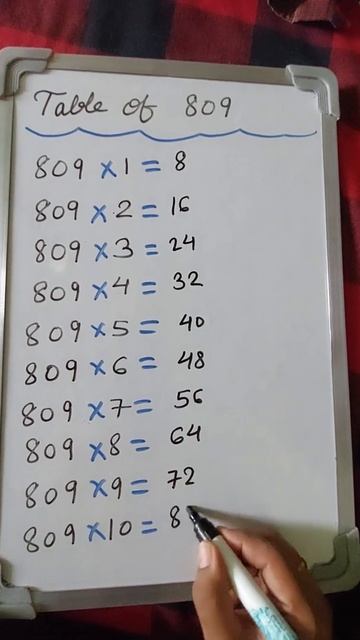 Table of 809
809 × 1 = 8
809 × 2 = 16
809 × 3 = 24
809 × 4 = 32
809 × 5 = 40
809 × 6 = 48
809 × 7 = 56
809 × 8 = 64
809 × 9 = 72
809 × 10 = 8